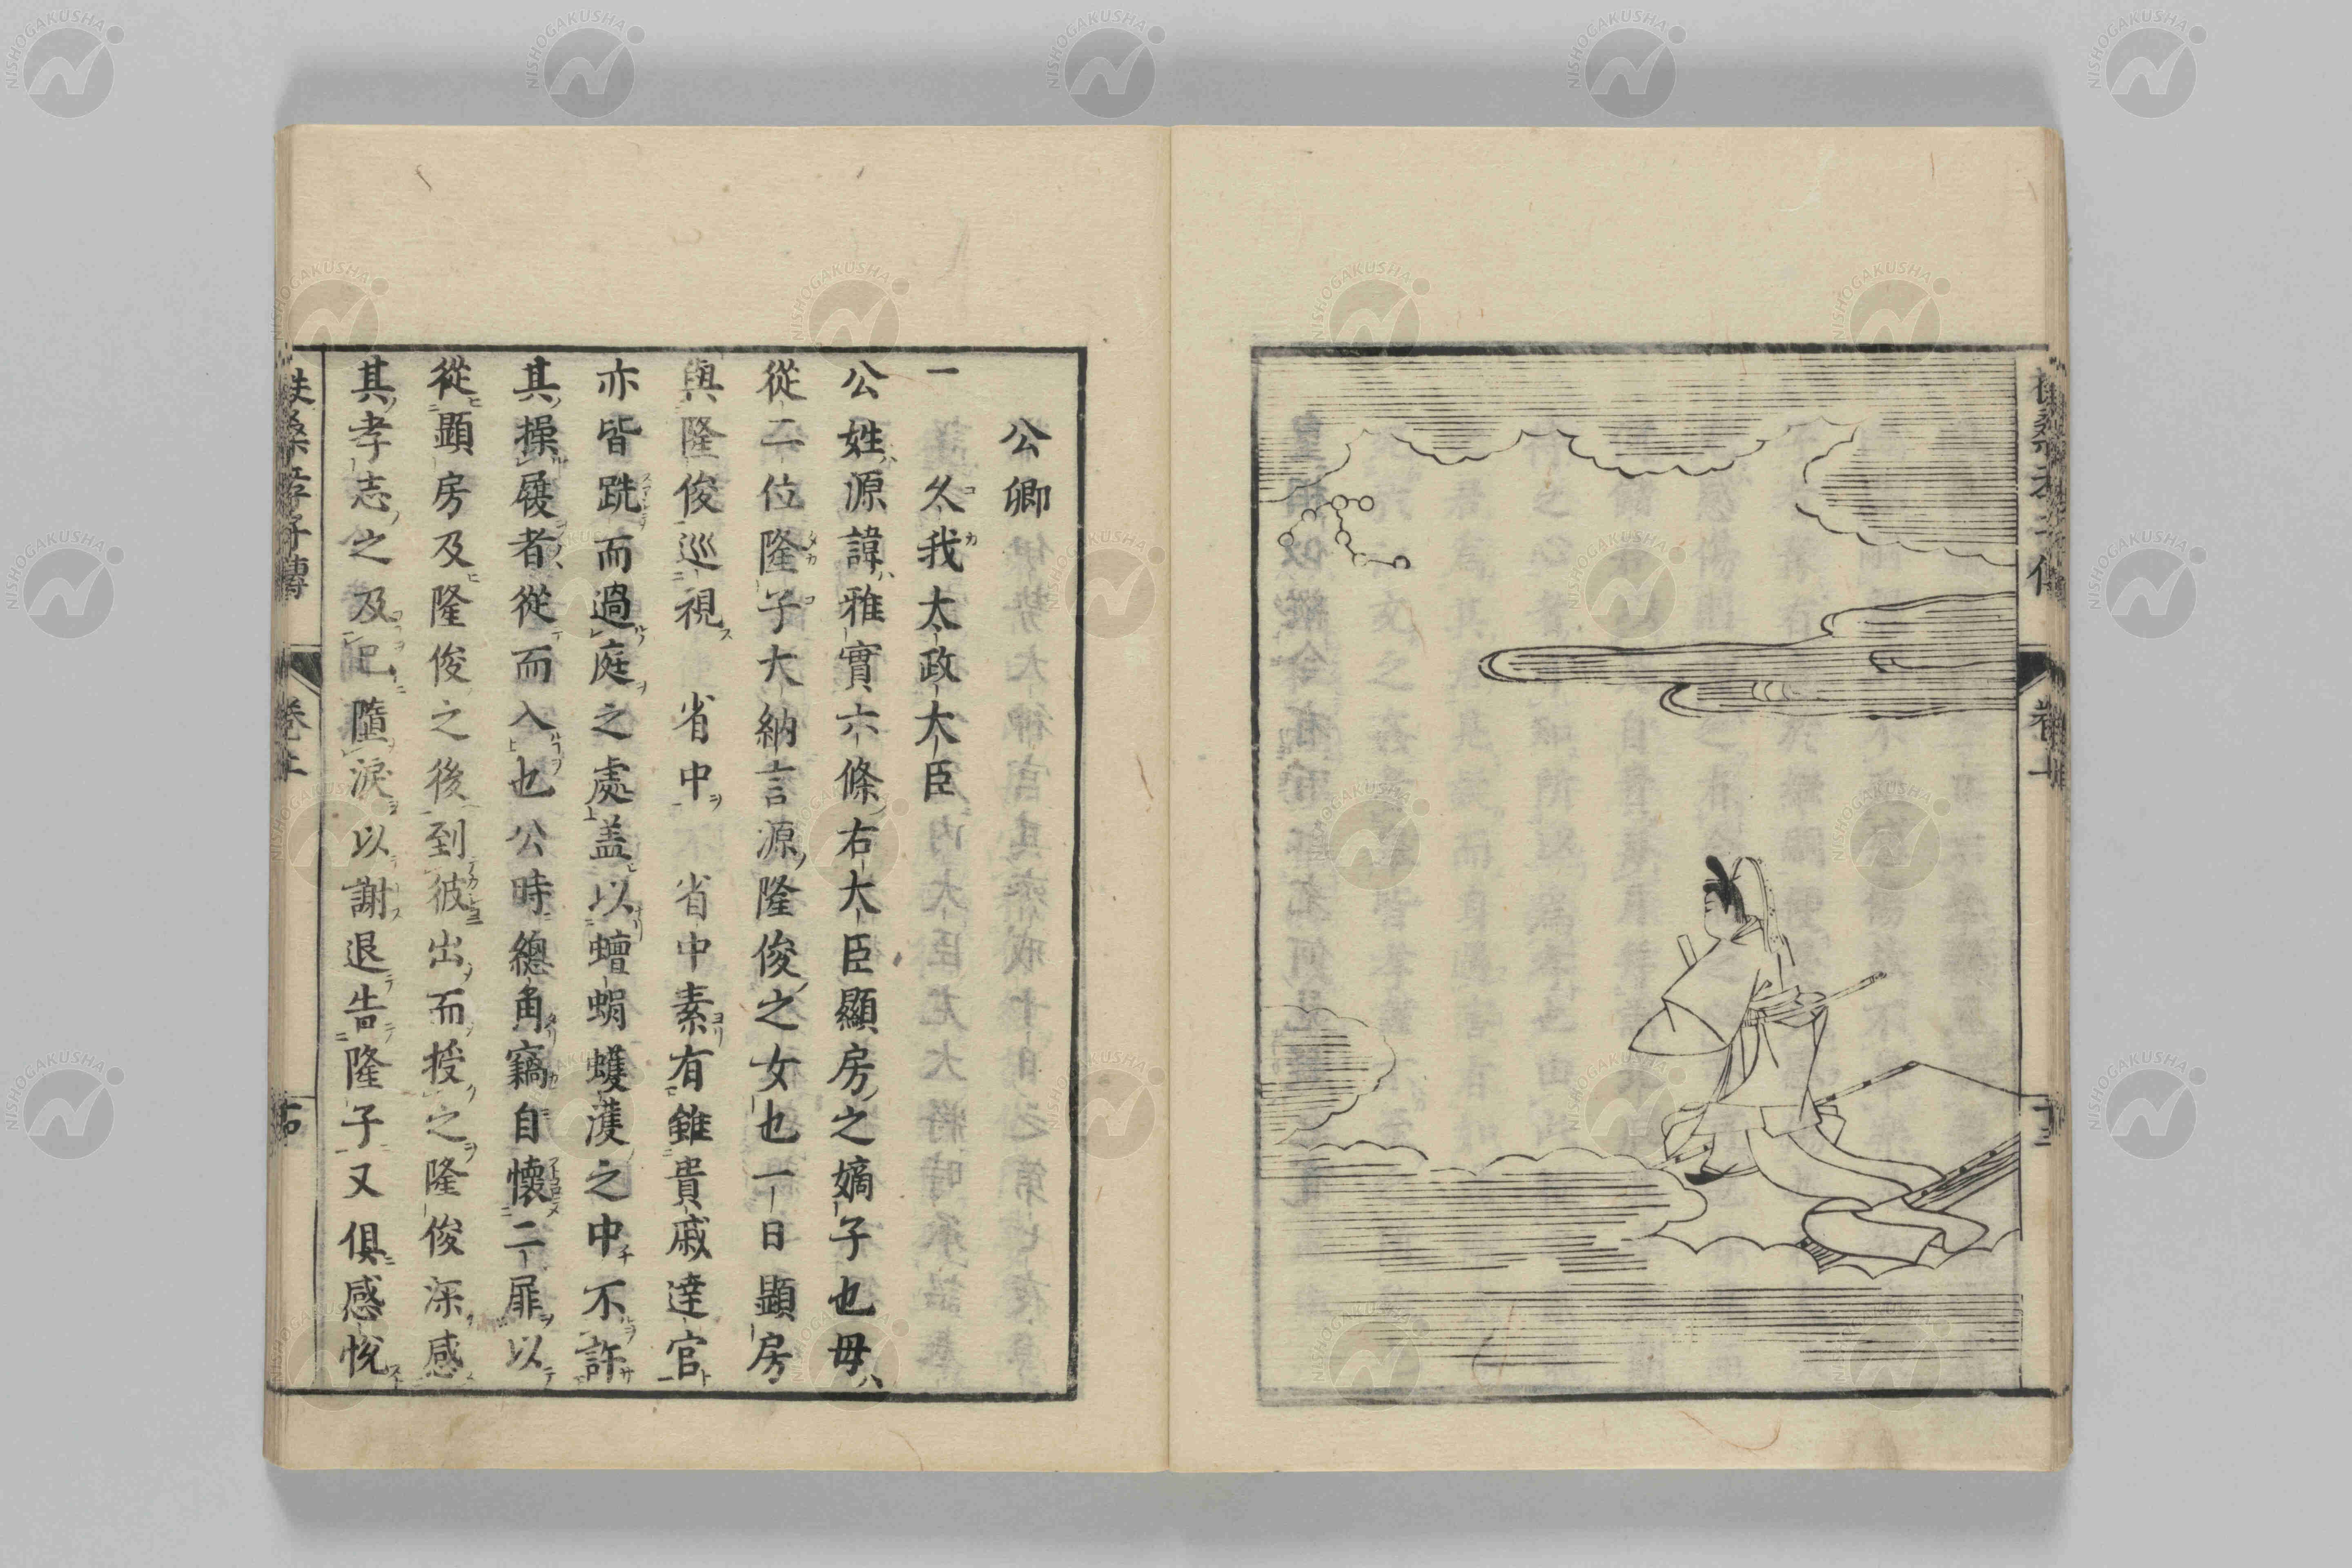 公卿
一　久我太政大臣
公姓源諱雅實六條右大臣顯房之嫡子也母
從二位隆子大納言源隆俊之女也一日顯房
與隆俊巡視　省中　省中素有雖貴戚達官
亦皆跣而過庭之處盖以蟺蜎蠖濩之中不許
其操履者從而入也公時總角竊自懷二扉以
從顯房及隆俊之後到彼出而授之隆俊深感
其孝志之及已墮淚以謝退告隆子又俱感悅
桑孝子傳　卷上
NISHOGAKUSHA